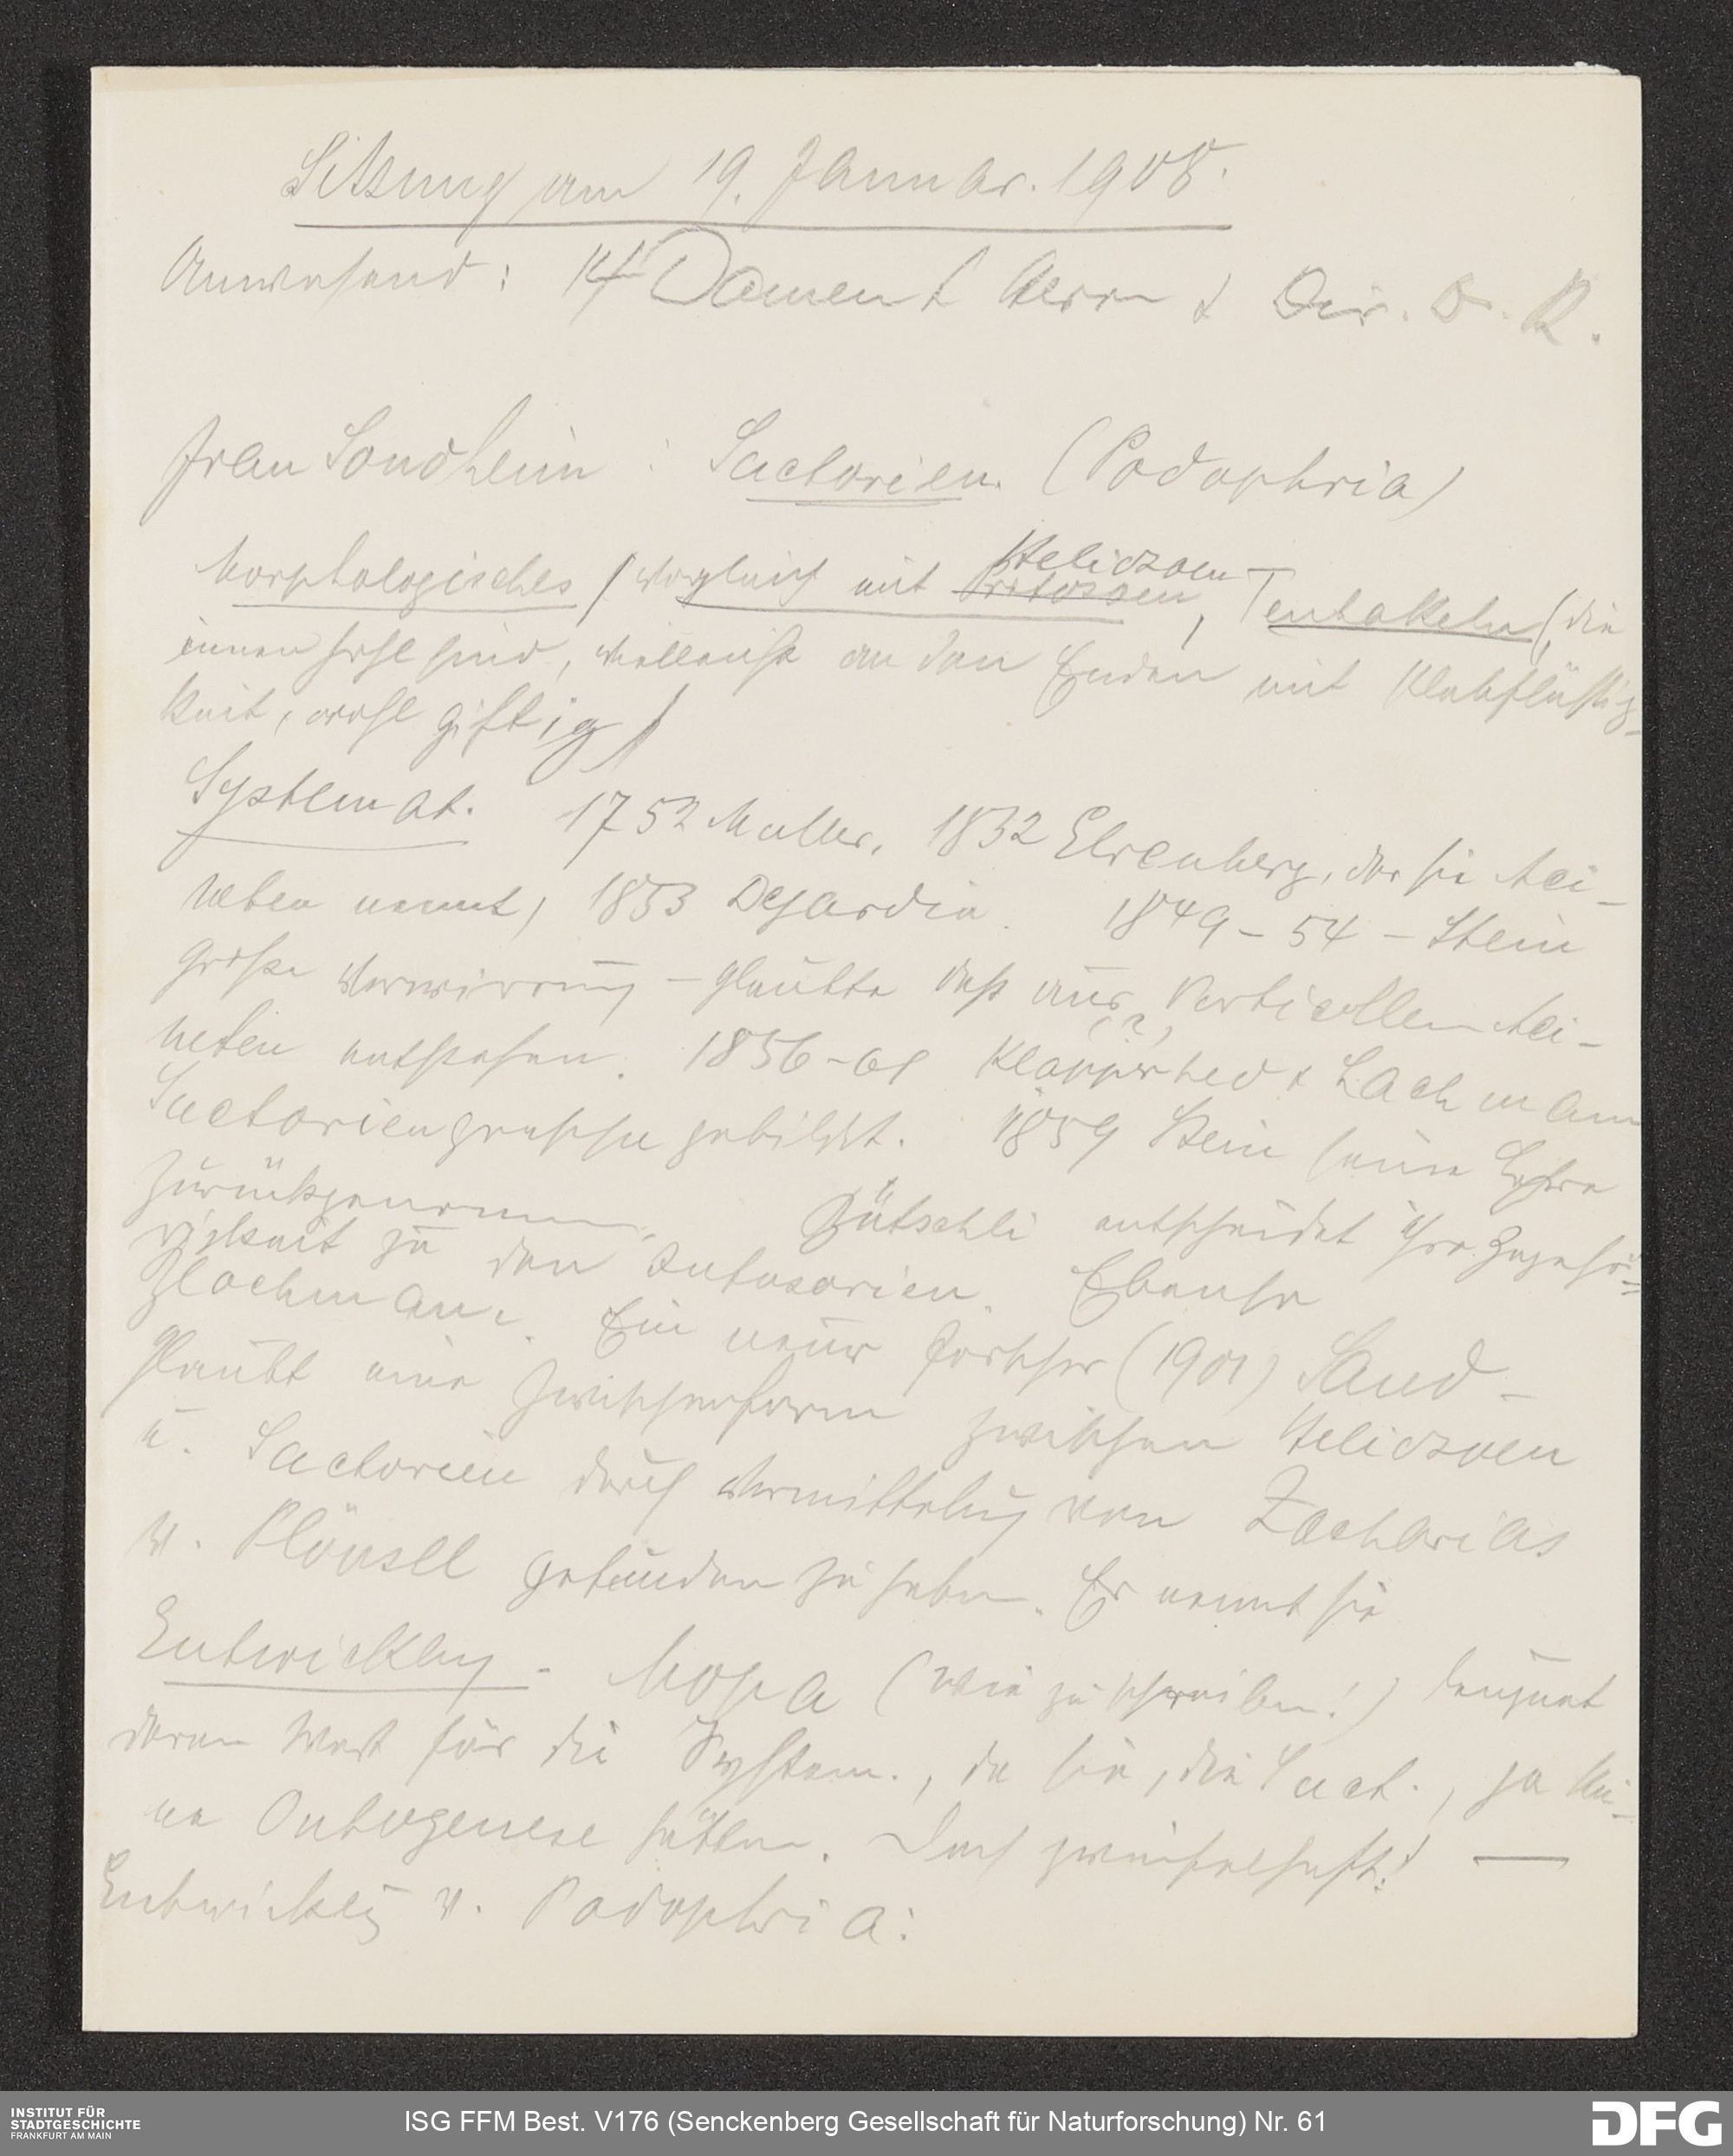 Sitzung am 19. Januar. 1908.
Anwesend: 14 Damen 1 Herrn & Dir. D. R.
Frau Sondheim : Suctorien. (Podophria)
Morphologisches / Vergleich mit Heliozoen
Tentakeln (die
innen hohl sind, vielleicht an den Enden mit Klebflüssig-
keit, wohl giftig)
Systemat. 1752 Muller. 1832 Ehrenberg, der sie Aci-
neten nennt, 1833 Dejardin. 1849-54 - Stein
große Verwirrung - glaubte daß aus Vorticellen Aci-
(?)
neten entstehen. 1856-61 & Lachmann
Suctoriengruppe gebildet. 1859 Stein seine Lehre
zurückgenommen. Bütschli entscheidet ihre Zugehö-
rigkeit zu den Infusorien. Ebenso
Blochmann. Ein neuer Forscher (1901) Sand -
glaubt eine Zwischenform zwischen Heliozoen
u. Suctorien durch Vermittelung von Zacharias
v. Plön gefunden zu haben. Er nennt sie
Entwicklung. (wie zu schreiben!) leugnet
deren Wert für die System., da sie, die Suct., ja kei-
ne Ontogenese hätten. Doch zweifelhaft! —
Entwickelg v. Podophria:
INSTITUT FÜR
STADTGESCHICHTE
FRANKFURT AM MAIN
ISG FFM Best. V176 (Senckenberg Gesellschaft für Naturforschung) Nr. 61
DFG